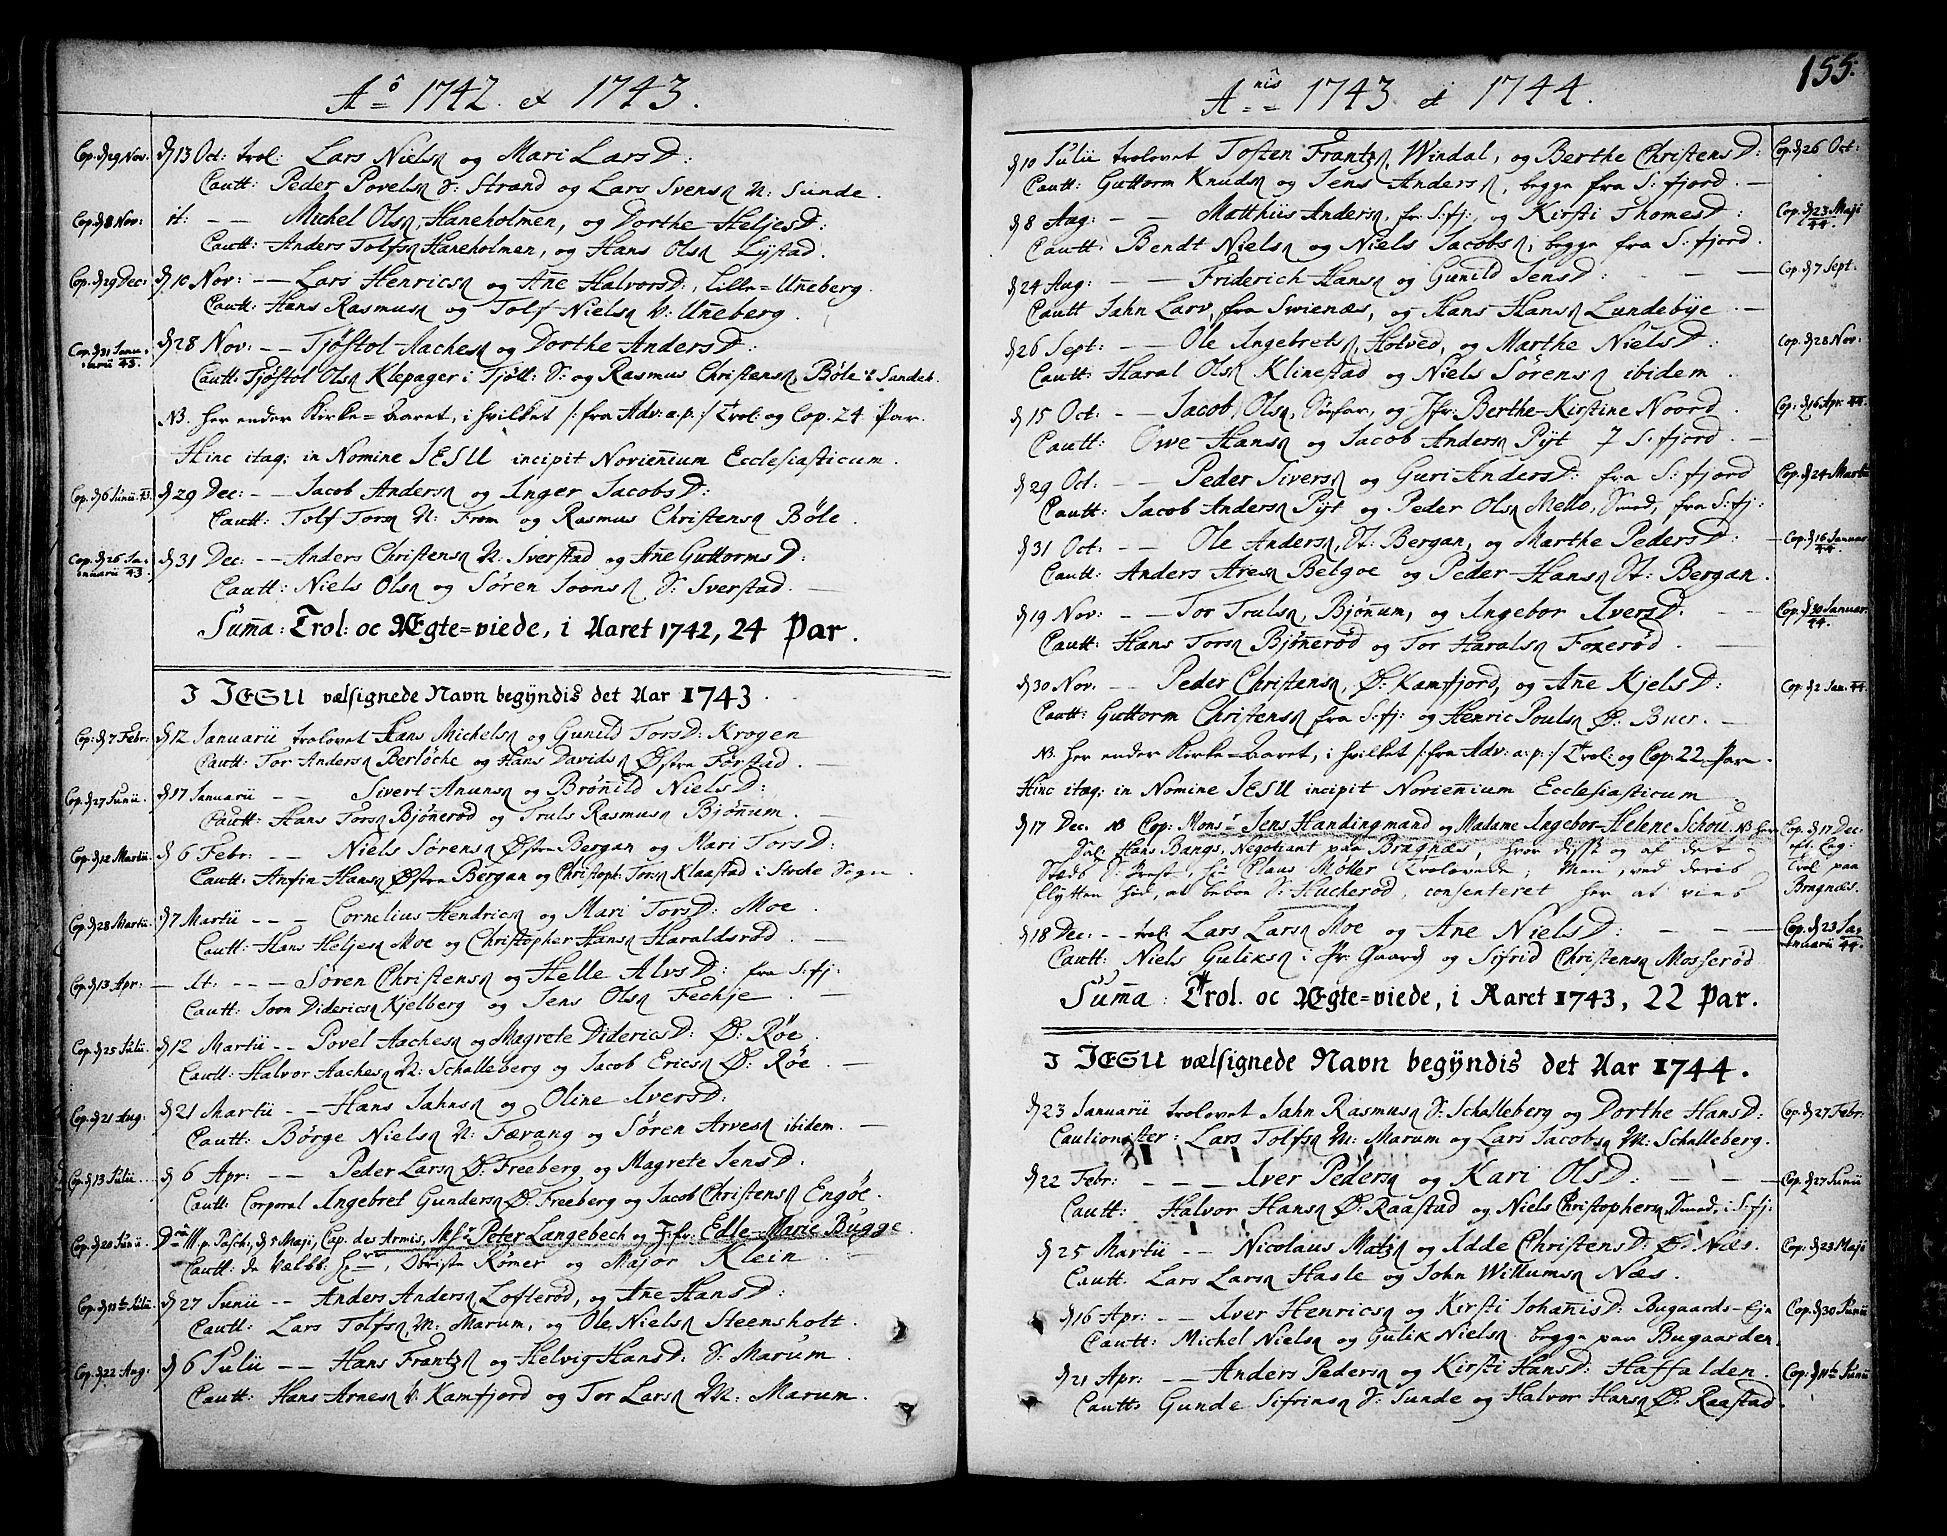 Aô 1742 et 1743.
Cop. d 29 Nov. d 13 Oct: trol: Lars Nielsn og Mari LarsD:
Cautt: Peder Povelsn S: Strand og Lars Svensn N: Sunde.
Cop. d 8 Nov: it: -- Michel Olsn, Haneholmen, og Dorthe HeljesD:
Cautt: Anders Tolfsn Haneholmen, og Hans Olsn Lystad.
Cop. d 29 Dec: d 10 Nov: -- Lars Henricsn og Añe HalvorsD:, Lille=Uñeberg.
Cautt: Hans Rasmusn og Tolf Nielsn V: Uñeberg.
Cop. d 31 Januarii 43. d 28 Nov: -- Tjøstol Aachesn og Dorthe AndersD:
Cautt: Tjøstol Olsn Klepager i Tjøll: S: og Rasmus Christensn, Bøle i Sandeh.
NB. her ender Kirke=Aaret, i hvilket /: fra Adv: a: p: / Trol: og Cop. 24 Par.
Hinc itaq; in Nomine JESU incipit Novieñium Ecclesiasticum.
Cop. d 6 Junii 43. d 29 Dec: -- Jacob Andersn og Inger JacobsD:
Cautt: Tolf Torsn N: Fron og Rasmus Christensn Bøle.
Cop. d 26 Januarii 43 d 31 Dec: -- Anders Christensn N. Sverstad og Añe GuttormsD:
Cautt: Niels Olsn og Søren Joonsn S: Sverstad.
Suma: Trol: oc Ægte=viede, i Aaret 1742, 24 Par.
I JESU vælsignede Navn begÿndis det Aar 1743.
Cop: d 7 Febr: d 12 Januarii trolovet Hans Michelsn og Gunild TorsD: Krogen
Cautt: Tor Andersn Berløche og Hans Davidsn Østre Førstad.
Cop. d 27 Junii. d 17 Januarii -- Sivert Anunsn og Brøñild NielsD:
Cautt: Hans Torsn Bjøñerød og Truls Rasmusn Bjøñum.
Cop. d 12 Martii. d 6 Febr: -- Niels Sørensn Østre Bergan og Mari TorsD:
Cautt: Anfin Hansn Østre Bergan og Christoph: Torsn Klaastad i Stoche Sogn
Cop. d 28 Martii. d 7 Martii --- Cornelius Hendricsn og Mari TorsD: Moe
Cautt: Hans Heljesn Moe og Christopher Hansn Haraldsrød.
Cop. d 13 Apr: It: --- Søren Christensn og Helle AlvsD: fra S: fj:
Cautt: Joon Didericsn Kjelberg og Jens Olsn Fechje.
Cop. d 25 Julii. d 12 Martii -- Povel Aachesn og Magrete DidericsD: Ø: Røe.
Cautt: Halvor Aachesn N: Schalleberg og Jacob Ericsn Ø: Røe.
Cop. d 21 Aug: d 21 Martii -- Hans Jahnsn og Oline IversD:
Cautt: Børge Nielsn N: Færvang og Søren Arvesn ibidem.
Cop. d 13 Julii. d 6 Apr: -- Peder Larsn Ø: Freeberg og Magrete JensD.
Cautt: Corporal Ingebret Gundersn Ø: Freeberg og Jacob Christensn Engøe.
Cop. d 20 Junii. D III p. Pasch: d 5 Maji, Cap. des Armis, Peter Langebech og Jfr: Edle-Marie Bugge.
Cautt: de Vælbb. Obriste Rømer og Major Klein
Cop. d 11te Julii. d 27 Junii -- Anders Andersn Lofterød, og Añe HansD:
Cautt: Lars Tolfsn M: Marum, og Ole Nielsn Steensholt.
Cop. d 22 Aug: d 6 Julii -- Hans Frantzn og Helvig HansD: S: Marum.
Cautt: Hans Arnesn V: Kamfjord og Tor Larsn M: Marum.
Anis 1743 et 1744. 155:
d 10 Julii trolovet Tosten Frantzn, Windal, og Berthe ChristensD: Cop. d 26 Oct:
Cautt: Guttorm Knudsn og Jens Andersn, begge fra S: fjord.
d 8 Aug: -- Matthiis Andersn, fr. S: fj:, og Kirsti ThomesD: Cop. d 23 Maji 44.
Cautt: Bendt Nielsn og Niels Jacobsn, begge fra S: fjord.
d 24 Aug: -- Friderich Hansn og Gunild JensD: Cop. d 7 Sept:
Cautt Jahn Larv, fra Svienæs, og Hans Hansn Lundebÿe.
d 26 Sept: -- Ole Ingebretsn, Holved, og Marthe NielsD: Cop. d 28 Nov:
Cautt: Haral Olsn Klinestad og Niels Sørensn ibidem.
d 15 Oct: -- Jacob Olsn, og Jfr: Berthe-Kirstine Noord. Cop: d 16 Apr: 44.
Cautt: Owe Hansn og Jacob Andersn Pÿt S: fjord.
d 29 Oct: -- Peder Siversn og Guri AndersD: fra S: fjord Cop: d 24 Martii
Cautt: Jacob Andersn Pÿt og Peder Olsn Mello, Smed, fra S: fj:
d 31 Oct: -- Ole Andersn, St: Bergan, og Marthe PedersD: Cop: d 16 Januar 44.
Cautt: Anders Aresn Belgoe og Peder Hansn St: Bergan.
d 19 Nov: -- Tor Trulsn, Bjøñum, og Ingebor IversD: Cop. d 30 Januar. 44.
Cautt: Hans Torsn Bjøñerød og Tor Haralsn Foxerød.
d 30 Nov: -- Peder Christensn, Ø: Kamfjord, og Añe KjelsD: Cop: d 2 Jan: 44.
Cautt: Guttorm Christensn fra S: fj: og Henric Poulsn Ø: Buer.
NB. her ender Kirke=Aaret, i hvilket /: fra Adv: a: p: / Trol: og Cop: 22 Par.
Hinc itaq; in Nomine JESU incipit Novieñium Ecclesiasticum
d 17 Dec. NB Cop: Monsr Jens Handingmand og Madame Ingebor-Helene Schou. NB her Cop: d 17 Dec.
Sal: Hans Bangs, Negotiant paa Bragnæs, hvor disse og af det Trol paa
Stæds S. Præst, Hr Claus Møller trolovede; Men, ved deris Bragnæs.
flytten hid, at beboe S: Hucherød, consenteret her at vies
d 18 Dec: -- trol: Lars Larsn Moe og Ane NielsD: Cop. d 23 Januarii 44.
Cautt: Niels Guliksn i Pr: Gaard og Sifrid Christensn Mosserød
Suma: Trol. oc Ægte=viede, i Aaret 1743, 22 Par.
I JESU vælsignede Navn begÿndis det Aar 1744.
d 23 Januarii trolovet Jahn Rasmusn S: Schalleberg og Dorthe HansD: Cop: d 27 Febr:
Cautionister: Lars Tolfsn M: Marum og Lars Jacobsn M: Schalleberg.
d 22 Febr: --- Iver Pedersn og Kari OlsD: Cop: d 27 Junii
Cautt: Halvor Hansn Ø: Raastad og Niels Christophersn, Smed, i S: fj:
d 25 Martii -- Nicolaus Matzn og Idde ChristensD: Ø: Næs. Cop: d 23 Maji
Cautt. Lars Larsn Hasle og John Willumsn Næs.
d 16 Apr: -- Iver Henricsn og Kirsti JohañisD: Bugaards-Ejn Cop: d 30 Junii
Cautt: Michel Nielsn og Gulik Nielsn begge paa Bugaarden.
d 21 Apr: -- Anders Pedersn og Kirsti HansD: Haffalden. Cop: d 11te Junii
Cautt: Gunde Sifrinsn S: Sunde og Halvor Hansn Ø: Raastad.